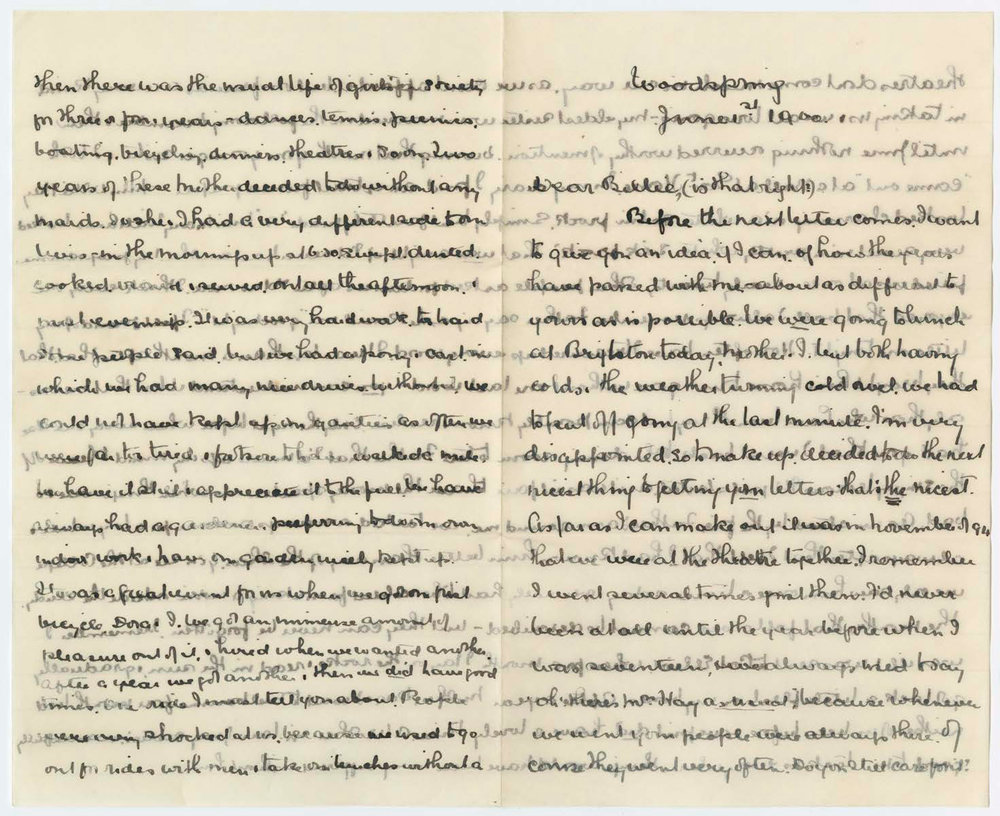 then there was the usual life of girls in society
for three or four years - dances, tennis, picnics,
boating, bicycling, dinners, theatres & so on. Two
years of these Mother decided to do without any
maids. So she & I had a very different side to our
lives - in the mornings up at 6.30, swept, dusted,
cooked & served, out all the afternoon &
evenings. It was very hard work, too hard
some people said, but we had a pony & cart in
which we had many nice drives, without it we
could not have kept up our gaieties as often we
were far too tired to walk a mile.
We have it still & appreciate it to the full. We have
always had a gardener, preferring to do our own
indoor work & have our garden nicely kept up.
It was a great event for us when we got our first
bicycle Dora & I. We got an immense amount of
pleasure out of it, & hired when we wanted another.
After a year we got another & then we did have good
times. One ride I must tell you about. People
were very shocked at us, because we used to go
out for rides with men & take our lunches without a
Woodspring
1900.
Dear Beelee, (is that right?)
Before the next letter comes, I want
to give you an idea, if I can, of how the years
have passed with me - about as different to
yours as is possible. We were going to lunch
at Brighton today, Mother & I, but both having
colds, & the weather turning cold & wet, we had
to put off going, at the last minute. I'm very
disappointed. So to make up, decided to do the next
nicest thing to getting your letters - that's the nicest.
As far as I can make out it was in November of 94
that we were at the theatre together. I remember
I went several times just then. I'd never
been at all until the year before when I
was seventeen, & I always used to say
"oh there's Mr. Hay as usual", because whenever
we went your people were always there. Of
course they went very often. Do you still care for it?